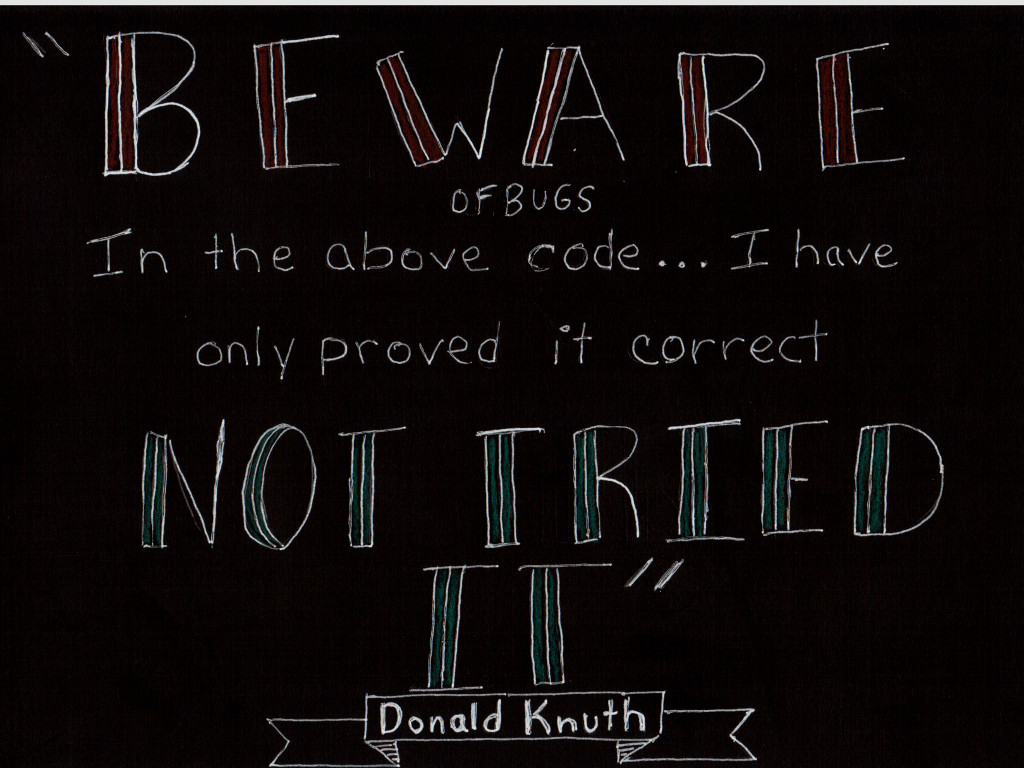 "BEWARE
OF BUGS
In the above code... I have
only proved it correct
NOT TRIED
IT"
Donald Knuth